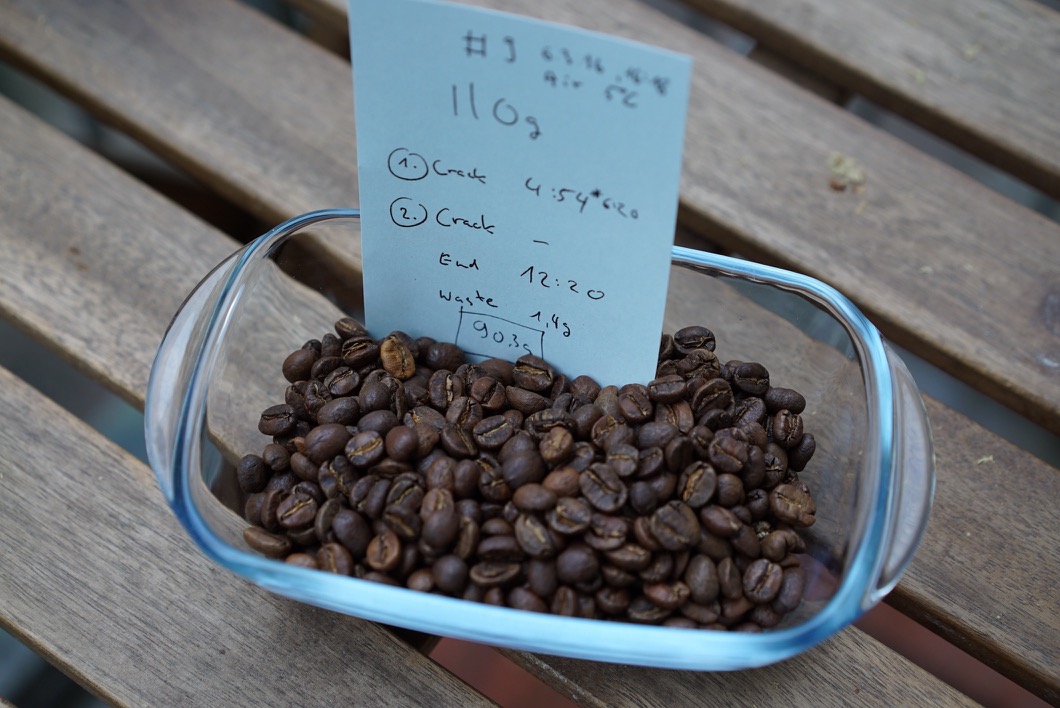 # 9
Air 5C
110g
1. Crack 4:54*6:20
2. Crack –
End 12:20
Waste 1,4g
90,3g